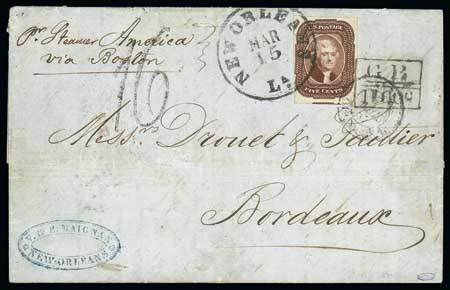 pr Steamer America
via Boston
NEW ORLEANS
MAR
15
LA
U.S. POSTAGE
FIVE CENTS
16
Messrs Drouet & Gautier
Bordeaux
MAIGNAN
NEW-ORLEANS